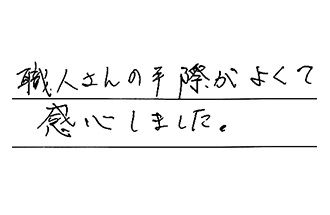 職人さんの手際がよくて
感心しました。